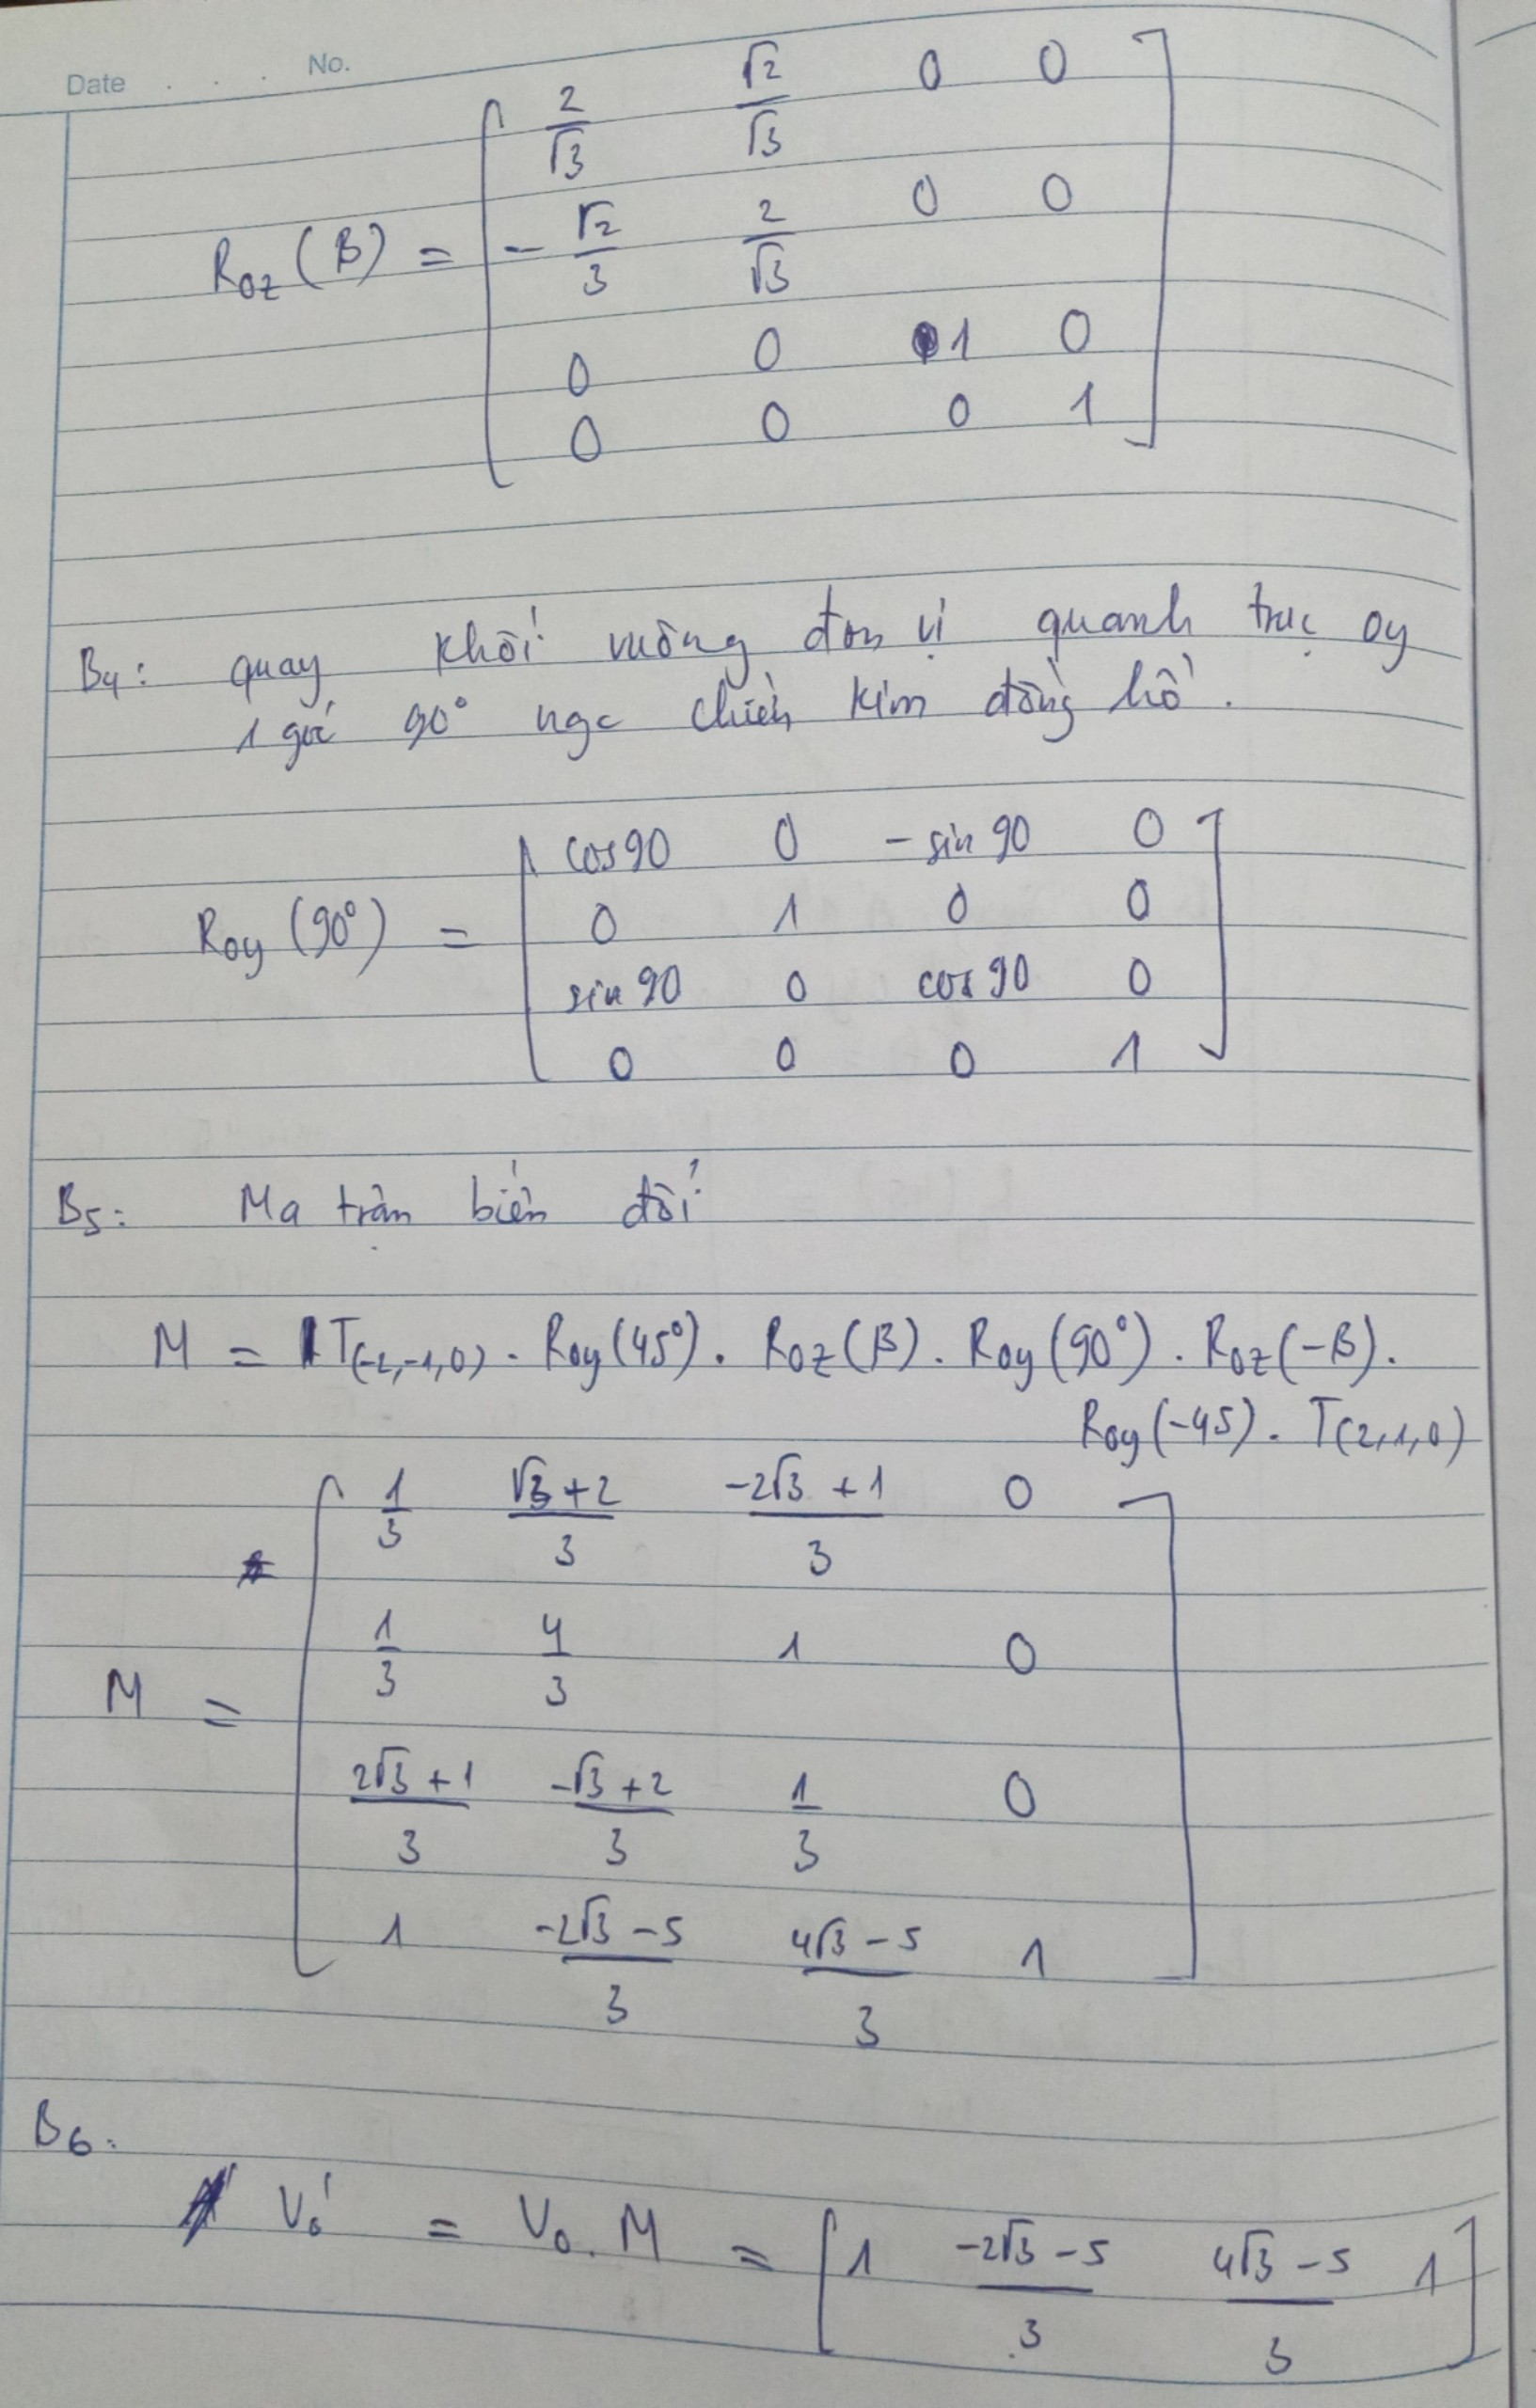 Date . . . No.
R_OZ (β) = [ 2/√3 √2/√3 0 0
-√2/3 2/√3 0 0
0 0 1 0
0 0 0 1 ]
B4: quay khối vuông đơn vị quanh trục oy
1 góc 90° ngc chiều kim đồng hồ.
R_oy (90°) = [ cos90 0 -sin90 0
0 1 0 0
sin90 0 cos90 0
0 0 0 1 ]
B5: Ma trận biến đổi
M = T(-2,-1,0) . R_oy(45°) . R_OZ(β) . R_oy(90°) . R_OZ(-β).
R_oy(-45) . T(2,1,0)
M = [ 1/3 (√3+2)/3 (-2√3+1)/3 0
1/3 4/3 1 0
(2√3+1)/3 (-√3+2)/3 1/3 0
1 (-2√3-5)/3 (4√3-5)/3 1 ]
B6:
V₀' = V₀.M = [ 1 (-2√3-5)/3 (4√3-5)/3 1 ]